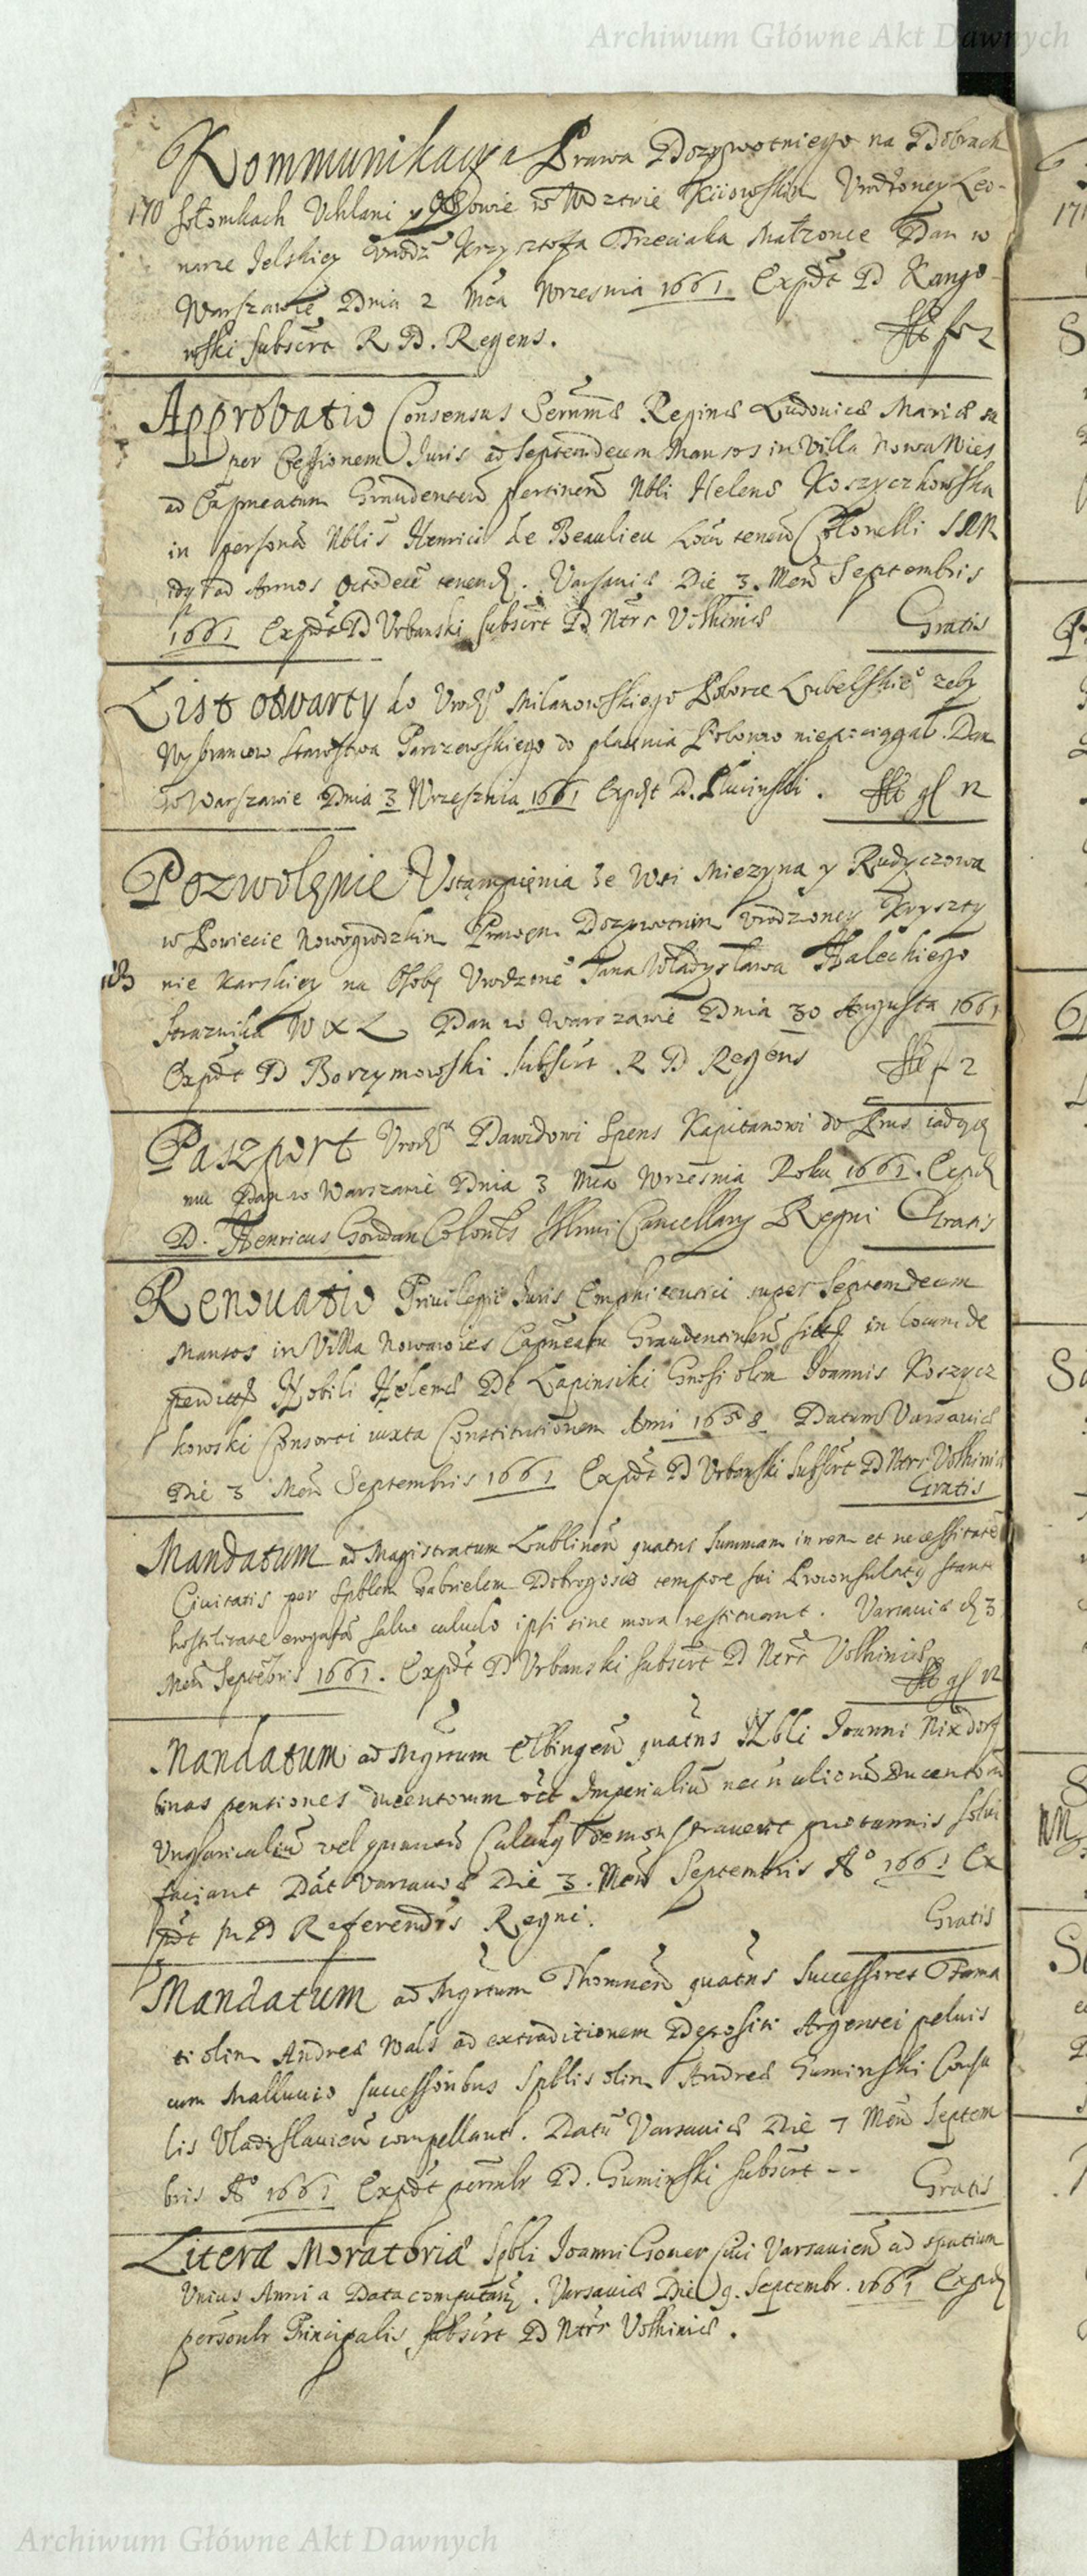 Archiwum Główne Akt Dawnych
Kommunikacya Prawa Dozywotniego na Dobrach
170 Sołomkach Uchlani y w Wdztwie Kiiowskim Vrodzoney Leo-
narze Jelskiey Vrodz Krzysztofa Trzeciaka Małzonce Dan w
Warszawie Dnia 2 Mca Wrzesnia 1661 Expdt D Kango-
wski subscrt R D. Regens. f 2
Approbatio Consensus Sermae Reginae Ludovicae Mariae su
per Cessionem Juris ad Septemdecim Mansos in Villa Nowa Wies
ad Capneatum Graudenten pertinen Nbli Helenae Koszyczkowska
in personā Nblis Henrici de Beaulieu Locu tenen Colonelli SRM
ad Annos Octodecē tenend. Varsaviae Die 3. Men Septembris
1661 Expdt D Urbanski subscrt D Ntrs Volhiniae Gratis
List otwarty do Vrodz Milanowskiego Poborce Lubelskiego zeby
Wybrancow Starostwa Parczewskiego do płacenia Poborow nie pociągał. Dan
w Warszawie Dnia 3 Wrzesznia 1661 Expdt D. gl 12
Pozwolenie Ustąmpięnia ze Wsi Miezyna y Rudyczowa
w Powiecie Nowogrodzkim Prawem Dozywotnim Vrodzoney Krysty
nie Karskiey na Osobę Vrodzone Jana Władysława Haleckiego
Straznika W X L Dan w Warszawie Dnia 30 Augusta 1661
Expdt D Borzymowski subscrt R D Regens f 2
Paszport Vrodz Dawidowi Spens Kapitanowi do Prus iadące
mu Dan w Warszawie Dnia 3 Mca Wrzesnia Roku 1661. Expd
D. Henricus Gordan Illmi Cancellary Regni Gratis
Renovatio Privilegii Juris Emphiteutici super Septemdecim
Mansos in Villa Nowawies Capneatu Graudentinen sitos in locum de
perdit Nobili Helenae De Lapinsiki Gnosi olim Joannis Koszycz
kowski Consorti iuxta Constitutionem Anni 1658 Datum Varsaviae
Die 3 Men Septembris 1661 Expdt D Urbanski subscrt D Ntrs Volhiniae
Gratis
Mandatum ad Magistratum Lublinen quatns Summam in rem et necessitatē
Civitatis per Spblem Gabrielem Dobrogosic tempore sui Proconsulaty stante
hostilitate erogatā salvo calculo ipsi sine mora restituant. Varsaviae d 3
Men Septēbris 1661. Expdt D Urbanski subscrt D Ntrs Volhiniae gl 12
Mandatum ad Mgrtum Elbingen quatns Nbli Joanni Nixdorf
binas pensiones ducentorum Imperialiū nec n aliorū Ducentorū
Ungaricaliū vel quantū Calculy demonstraverit quotannis solvi
faciant Dat Varsaviae Die 3. Men Septembris Ao 1661 Ex
pdt D Referendus Regni. Gratis
Mandatum ad Mgrtum Thornuen quatns Successores Fama
ti olim Andreae Wals ad extraditionem Depositi Argentei pelvis
cum Malluvio successoribus Spblis olim Andreae Guminski Consu
lis Vladislavien compellant. Datū Varsaviae Die 7 Men Septem
bris Ao 1661 Expdt D. Guminski subscrt -- Gratis
Literae Moratoriae Spbli Joanni Civi Varsavien ad spatium
Unius Anni a Data computan. Varsaviae Die 9. Septembr. 1661 Expd
personlr Principalis subscrt D Ntrs Volhiniae.
Archiwum Główne Akt Dawnych